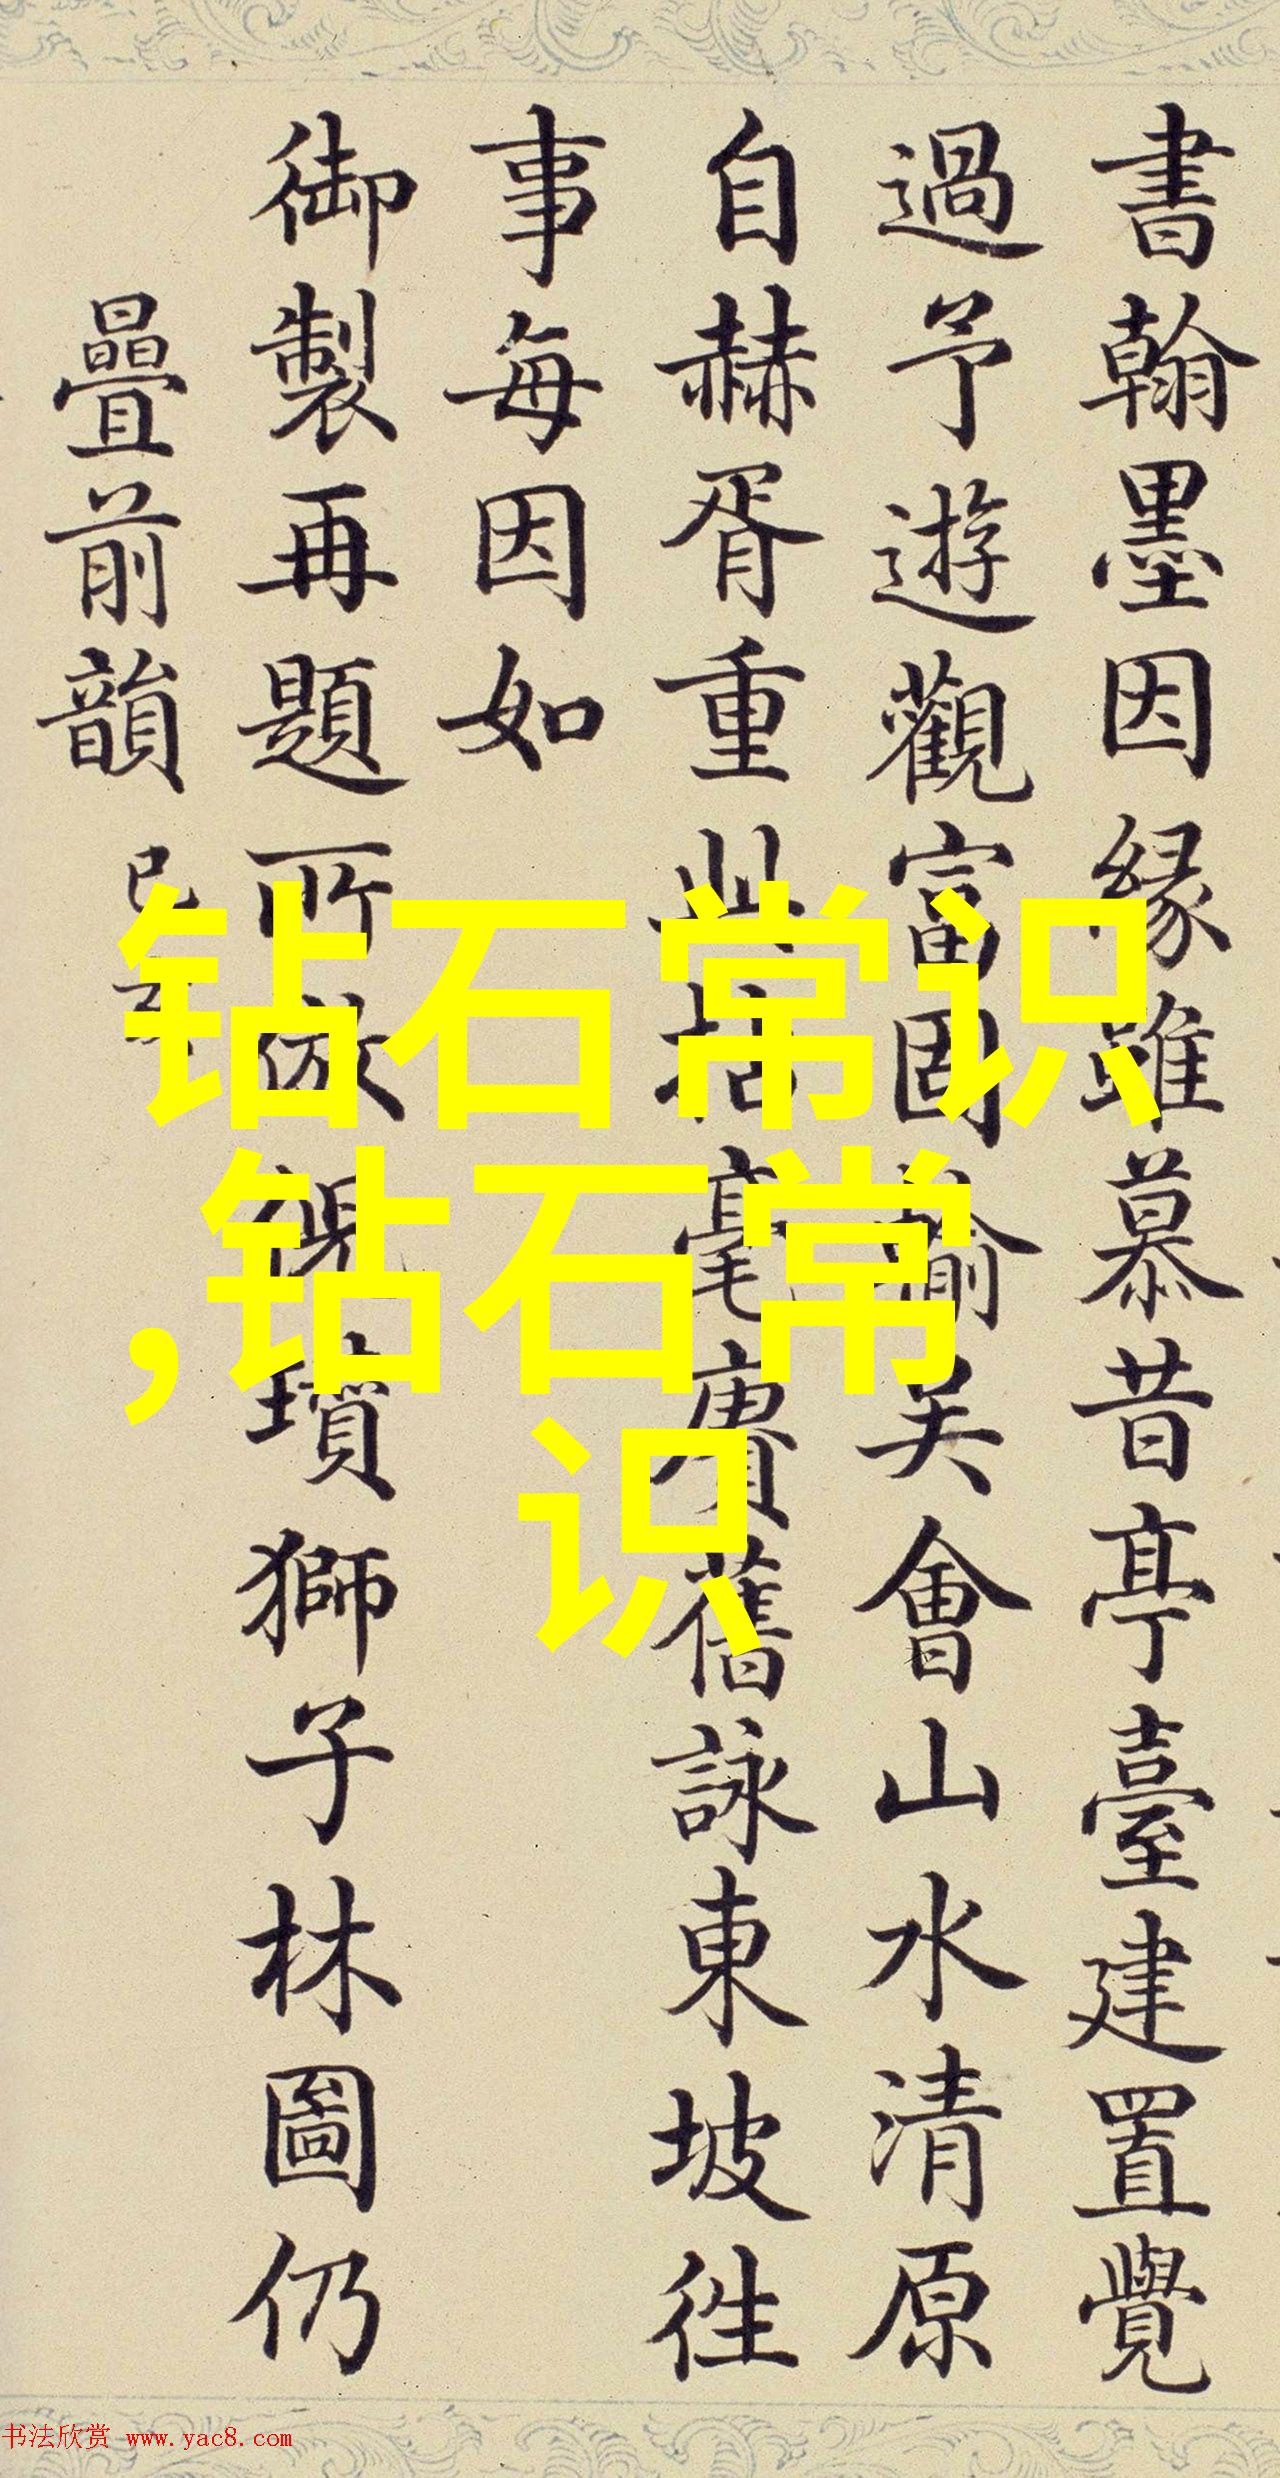 書翰墨因緣雖慕昔亭臺建置覺
過予遊觀富固輸美會山水清原
自赫胥重此拈毫賡舊詠東坡徃
事每因如
御製再題所倣倪瓚獅子林圖仍
疊前韻
钻石常识
,钻石常
识
书法欣赏 www.yac8.com